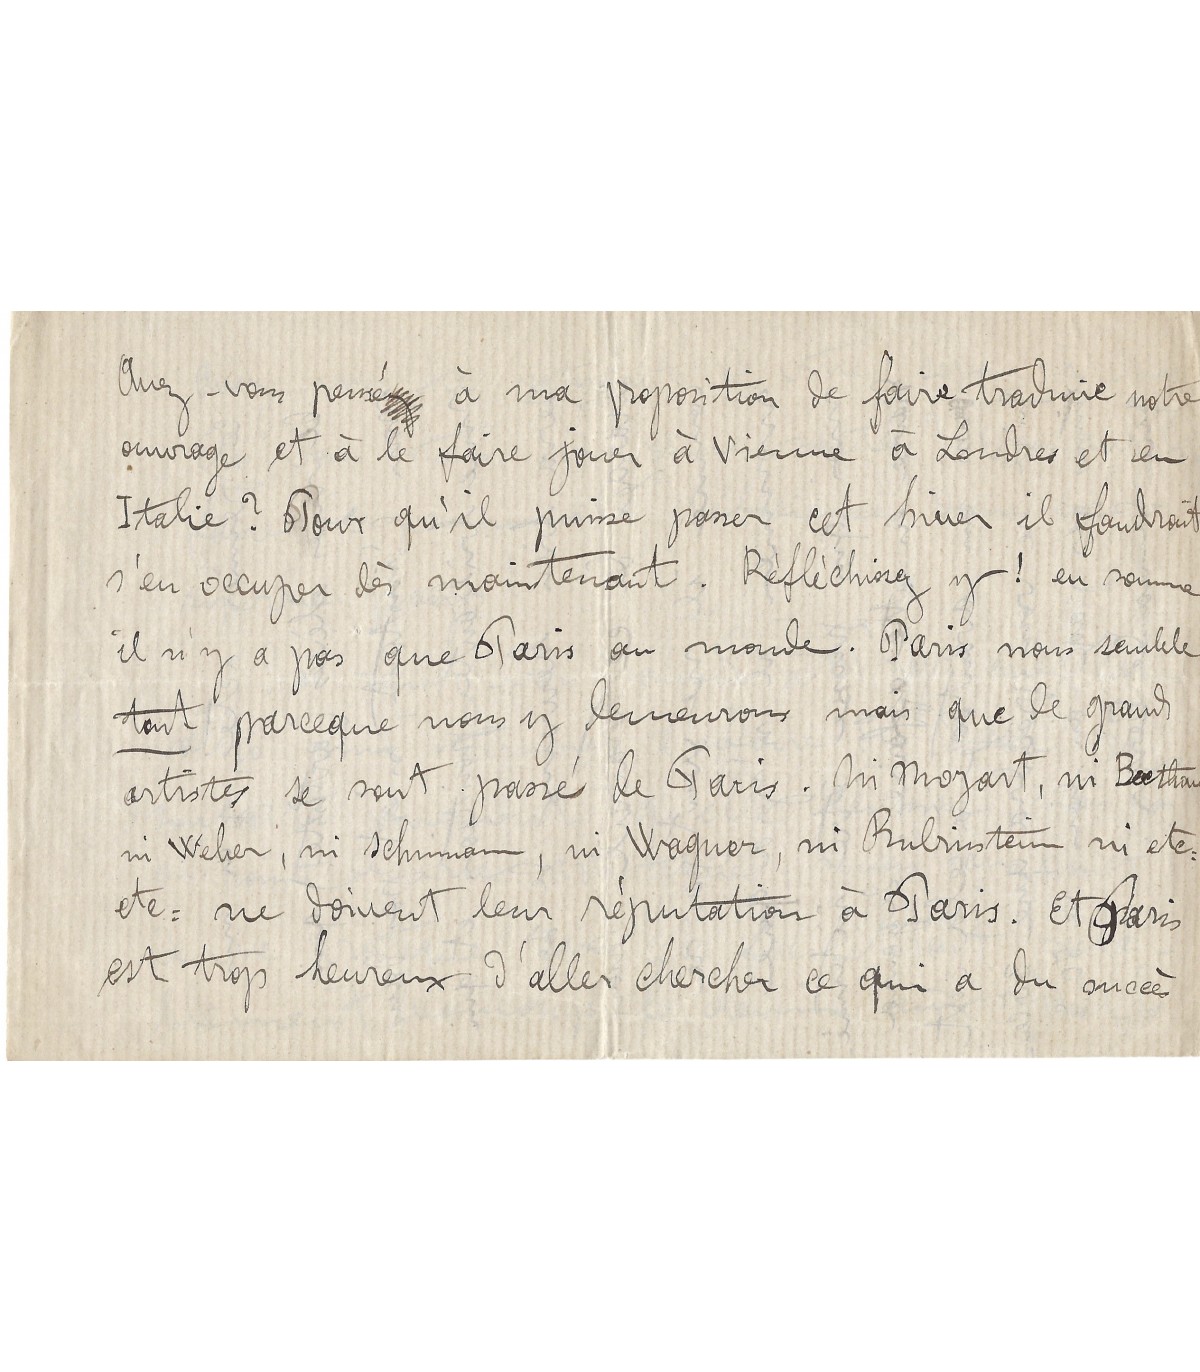 Avez-vous pensé à ma proposition de faire traduire notre
ouvrage et à le faire jouer à Vienne à Londres et en
Italie ? Pour qu'il puisse passer cet hiver il faudrait
s'en occuper dès maintenant. Réfléchissez y ! en somme
il n'y a pas que Paris au monde. Paris nous semble
tout parceque nous y demeurons mais que de grands
artistes se sont passé de Paris. Ni Mozart, ni Beethov
ni Weber, ni Schumann, ni Wagner, ni Rubinstein ni etc=
etc= ne doivent leur réputation à Paris. Et Paris
est trop heureux d'aller chercher ce qui a du succès